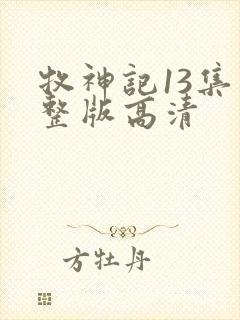 牧神記13集
整版高清
方牡丹